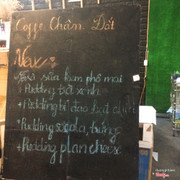 Coffee Chân Đất
Menu:
+ Trà sữa kem phô mai
+ Pudding trà xanh
+ Pudding bí đao hạt chia
+ Pudding socola, trứng
+ Pudding plan cheese